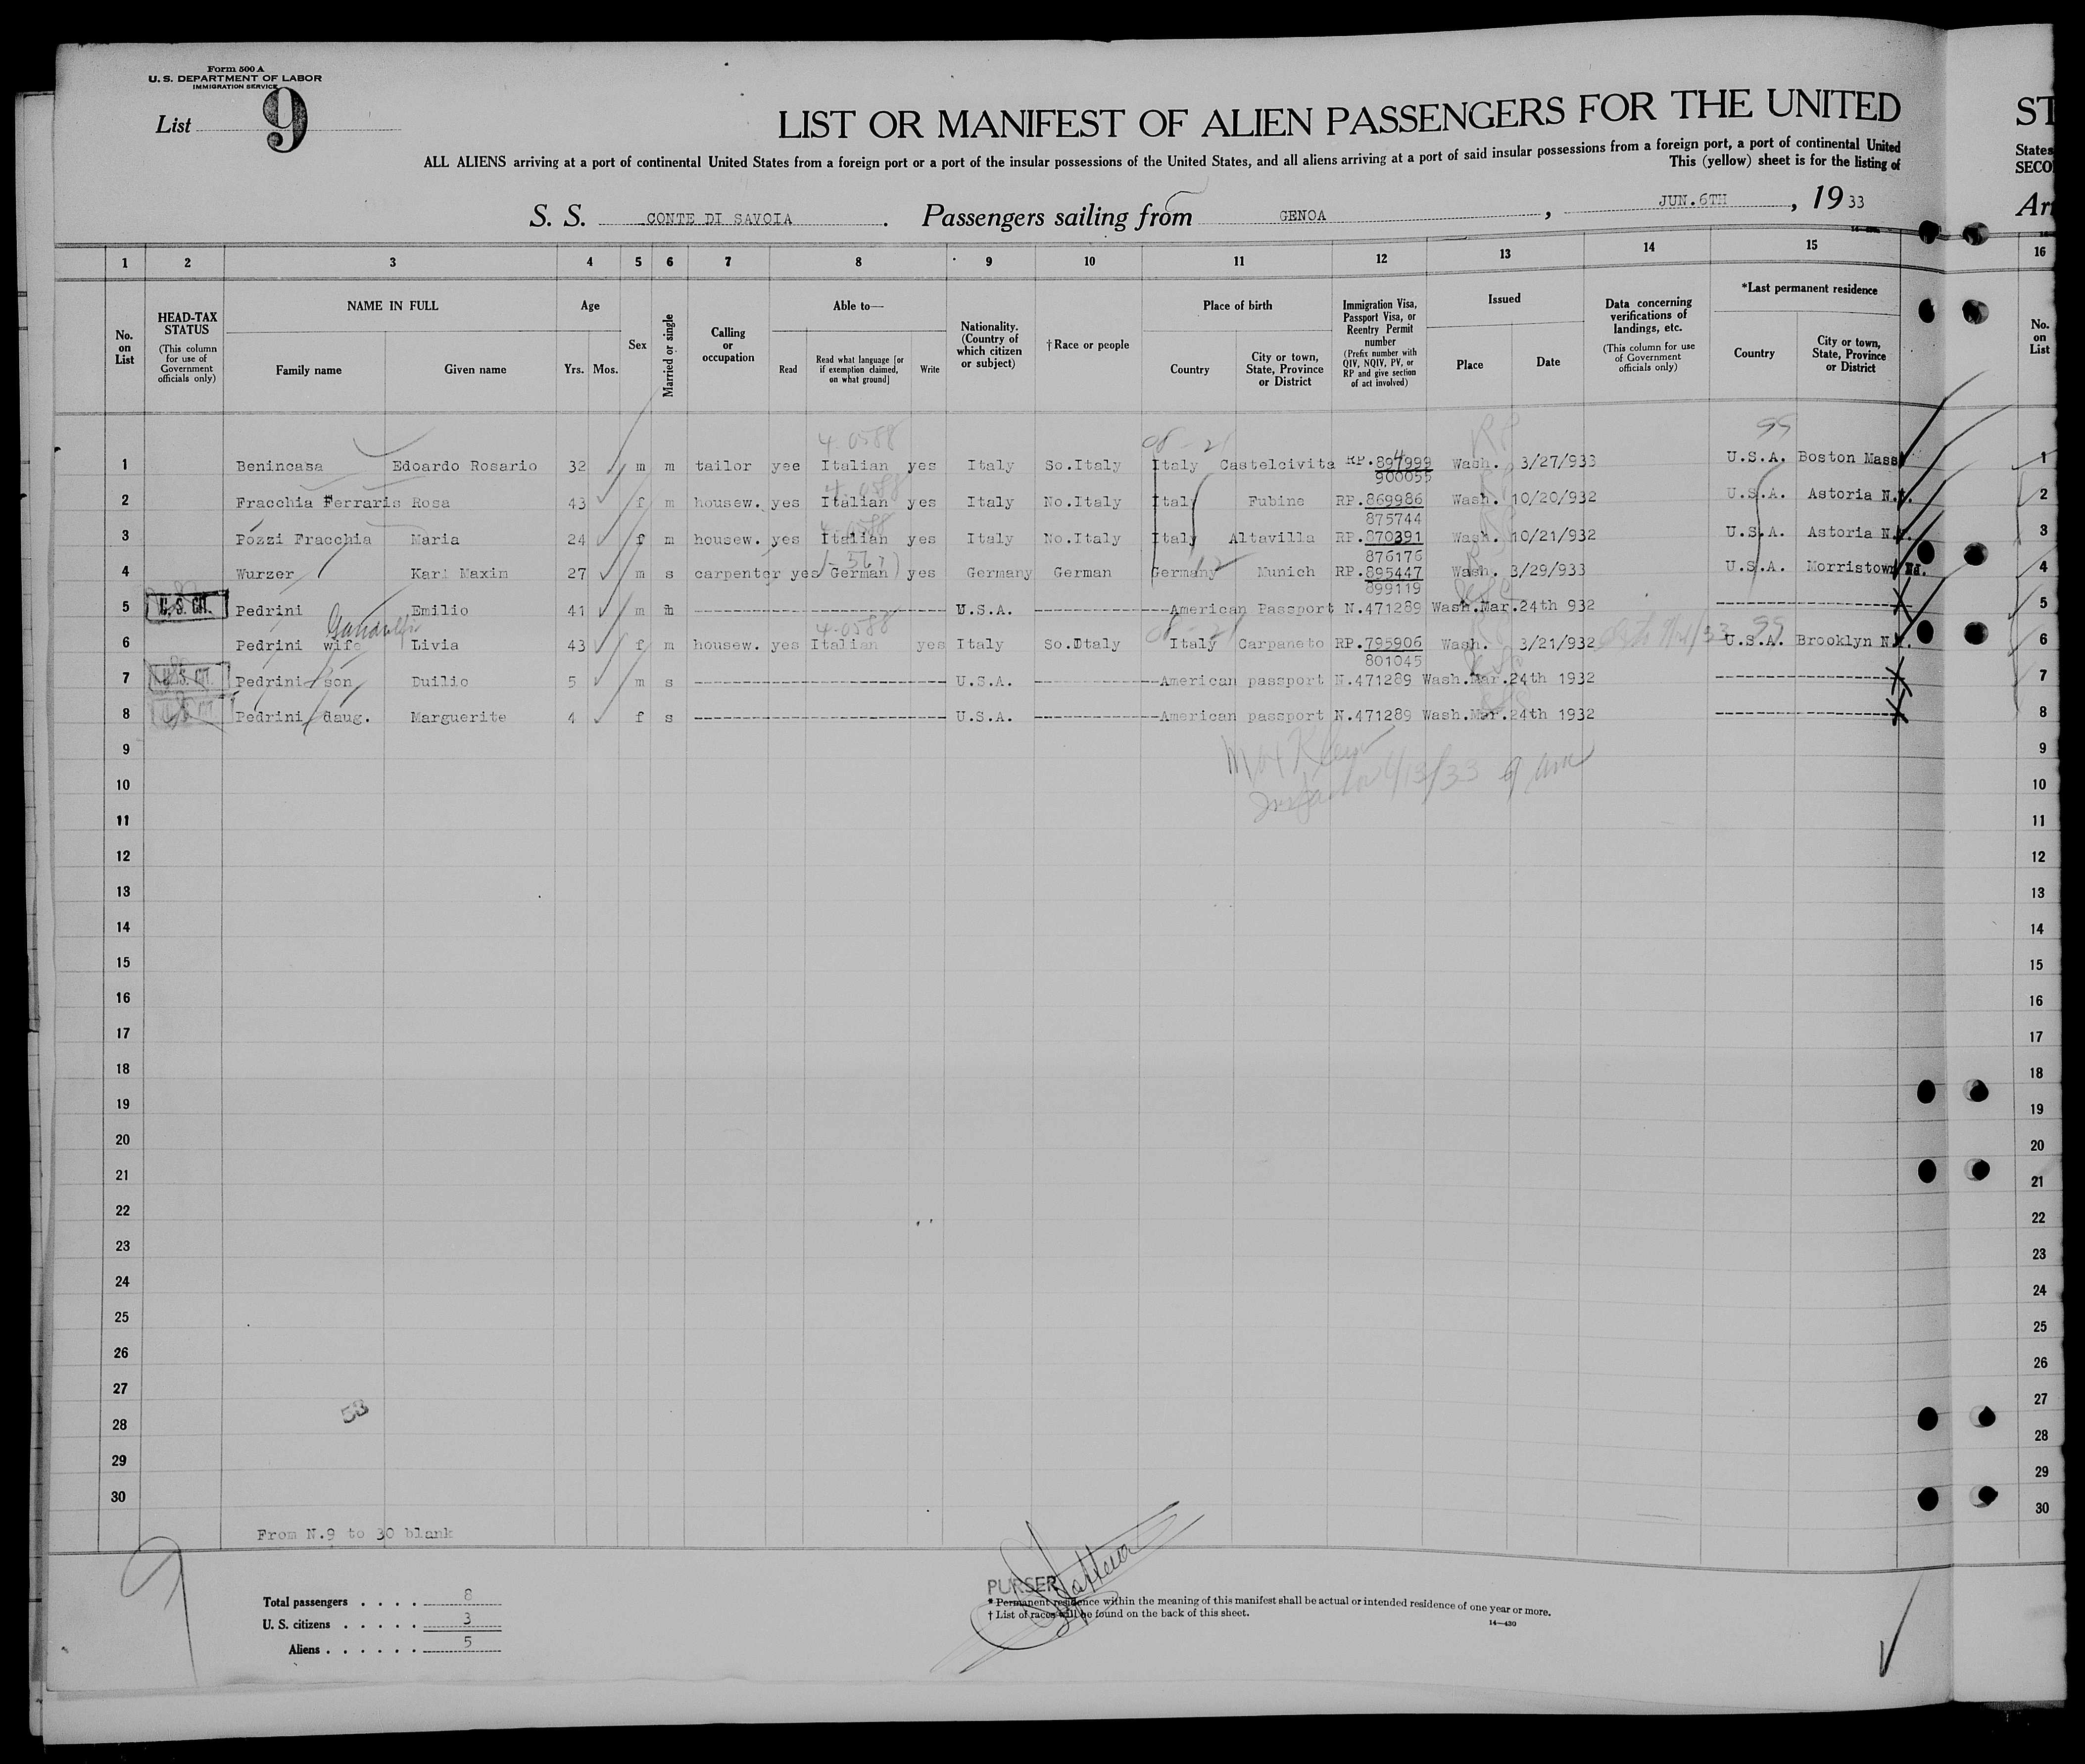 Form 500 A
U. S. DEPARTMENT OF LABOR
IMMIGRATION SERVICE
List 9
LIST OR MANIFEST OF ALIEN PASSENGERS FOR THE UNITED ST
ALL ALIENS arriving at a port of continental United States from a foreign port or a port of the insular possessions of the United States, and all aliens arriving at a port of said insular possessions from a foreign port, a port of continental United States
This (yellow) sheet is for the listing of SECO
S. S. CONTE DI SAVOIA. Passengers sailing from GENOA, JUN.6TH, 19 33 Arr
1 2 3 4 5 6 7 8 9 10 11 12 13 14 15 16
No. on List
HEAD-TAX STATUS
(This column for use of Government officials only)
NAME IN FULL
Family name Given name
Age
Yrs. Mos.
Sex
Married or single
Calling or occupation
Able to—
Read
Read what language [or if exemption claimed, on what ground]
Write
Nationality. (Country of which citizen or subject)
†Race or people
Place of birth
Country
City or town, State, Province or District
Immigration Visa, Passport Visa, or Reentry Permit number
(Prefix number with QIV, NQIV, PV, or RP and give section of act involved)
Issued
Place Date
Data concerning verifications of landings, etc.
(This column for use of Government officials only)
*Last permanent residence
Country
City or town, State, Province or District
No. on List
4-0588 99
1 Benincasa Edoardo Rosario 32 m m tailor yee Italian yes Italy So.Italy Italy Castelcivita RP.897999 Wash. 3/27/933 U.S.A. Boston Mass 1
900055
2 Fracchia Ferraris Rosa 43 f m housew. yes Italian yes Italy No.Italy Italy Fubine RP.869986 Wash. 10/20/932 U.S.A. Astoria N.Y. 2
875744
3 Pozzi Fracchia Maria 24 f m housew. yes Italian yes Italy No.Italy Italy Altavilla RP.870391 Wash. 10/21/932 U.S.A. Astoria N.Y. 3
876176
4 Wurzer Karl Maxim 27 m s carpenter yes German yes Germany German Germany Munich RP.895447 Wash. 3/29/933 U.S.A. Morristown NJ. 4
899119
5 U.S. CIT. Pedrini Emilio 41 m m U.S.A. American Passport N.471289 Wash.Mar.24th 932 5
4-0588 99
6 Pedrini wife Livia 43 f m housew. yes Italian yes Italy So.Italy Italy Carpaneto RP.795906 Wash. 3/21/932 U.S.A. Brooklyn N.Y. 6
801045
7 U.S. CIT. Pedrini son Duilio 5 m s U.S.A. American passport N.471289 Wash.Mar.24th 1932 7
8 Pedrini daug. Marguerite 4 f s U.S.A. American passport N.471289 Wash.Mar.24th 1932 8
9 9
10 10
11 11
12 12
13 13
14 14
15 15
16 16
17 17
18 18
19 19
20 20
21 21
22 22
23 23
24 24
25 25
26 26
27 27
53
28 28
29 29
30 30
From N.9 to 30 blank
9
Total passengers . . . . 8
U. S. citizens . . . . . 3
Aliens . . . . . . 5
PURSER
* Permanent residence within the meaning of this manifest shall be actual or intended residence of one year or more.
† List of races will be found on the back of this sheet.
14—430